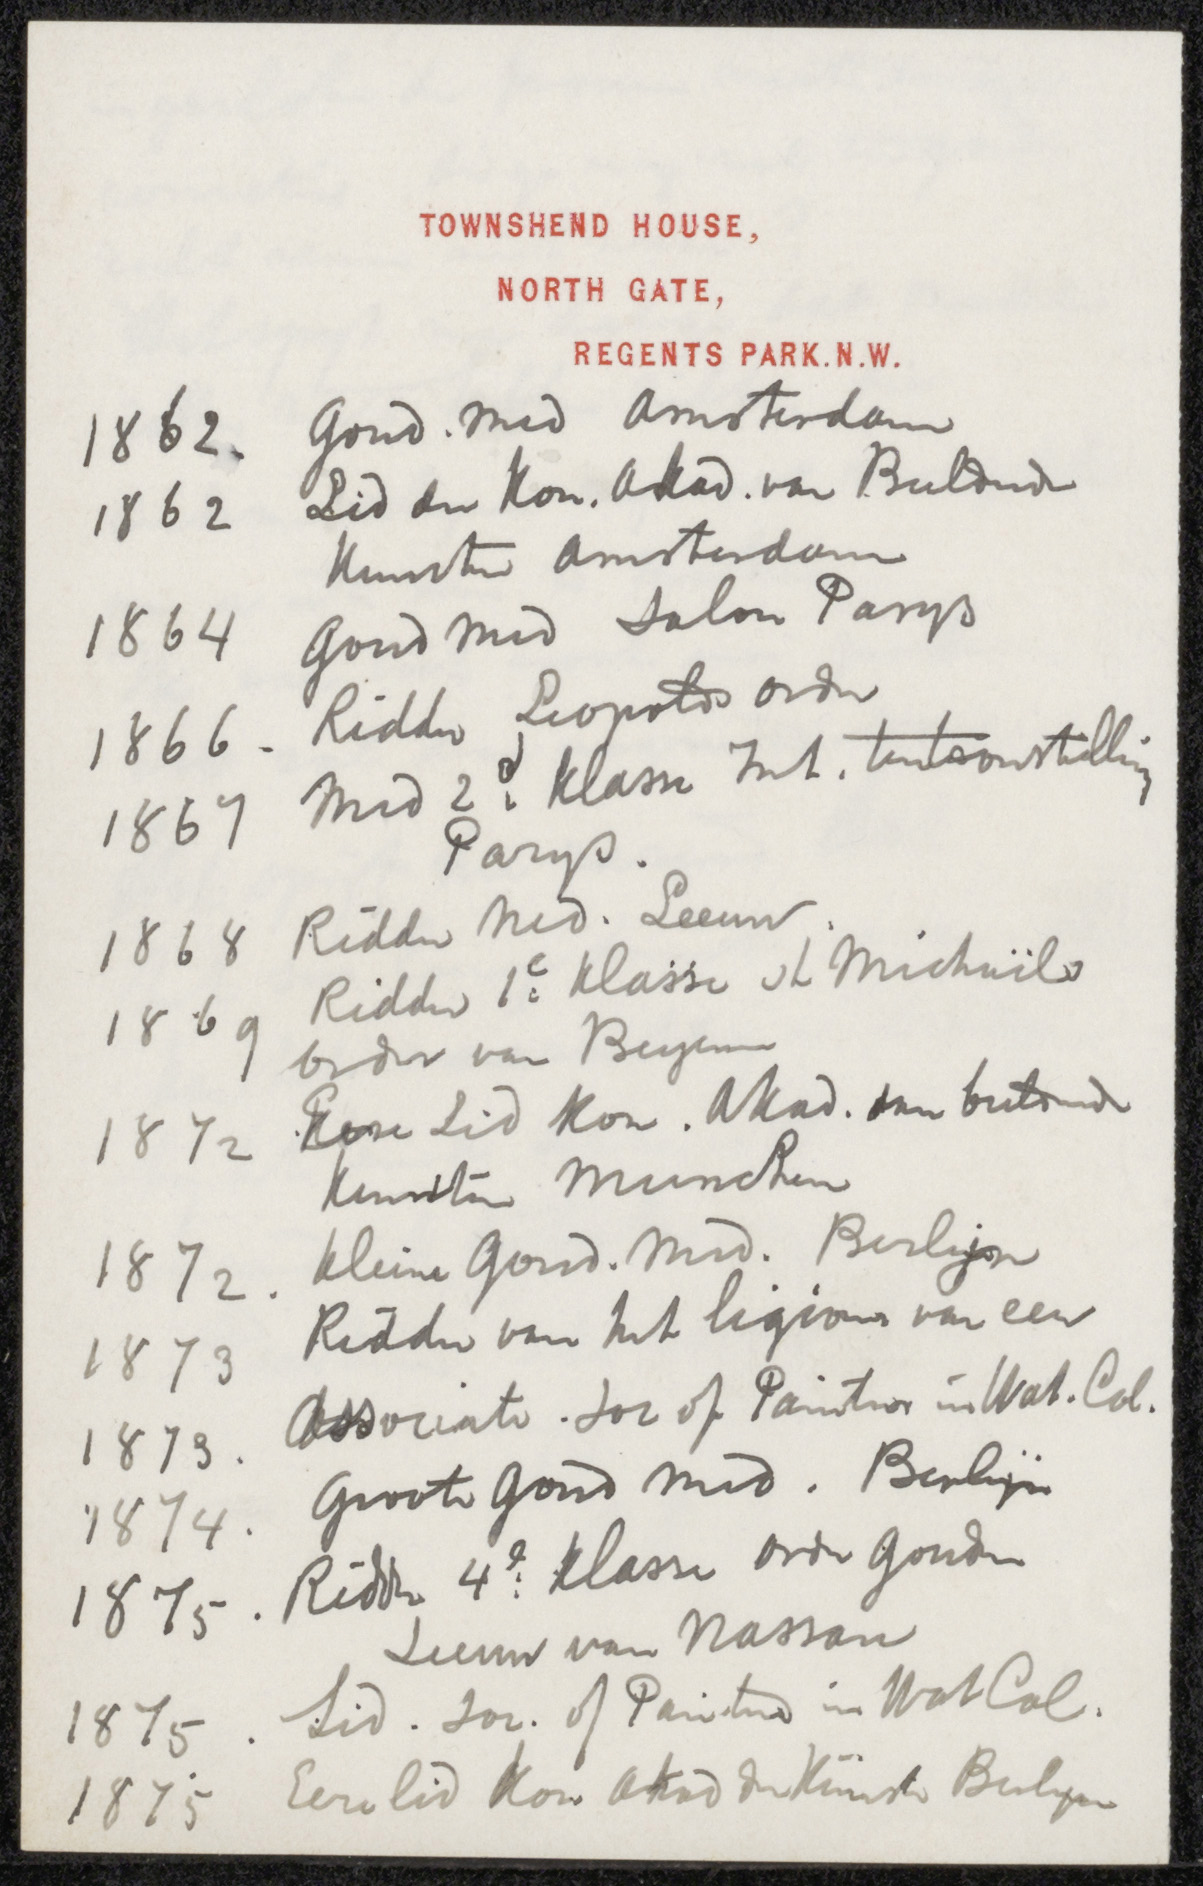 TOWNSHEND HOUSE,
NORTH GATE,
REGENTS PARK.N.W.
1862. Goud. Med Amsterdam
1862 Lid der Kon. Akad. van Beeldende
Kunsten Amsterdam
1864 Goud Med Salon Parys
1866 - Ridder Leopolds order
1867 Med 2de Klasse Int. tentoonstelling
Parys.
1868 Ridder Ned. Leeuw.
1869 Ridder 1e Klasse St Michaels
order van Beyeren
1872 Eere Lid Kon. Akad. van beeldende
Kunsten Munchen
1872. Kleine Goud. Med. Berlijn
1873 Ridder van het legioen van eer
1873. Associate. Soc of Painters in Wat. Col.
1874. Groote Goud Med. Berlijn
1875. Ridder 4e Klasse order Gouden
Leeuw van Nassau
1875. Lid. Soc. of Painters in Wat Col.
1875 Eere lid Kon Akad der Künste Berlyn